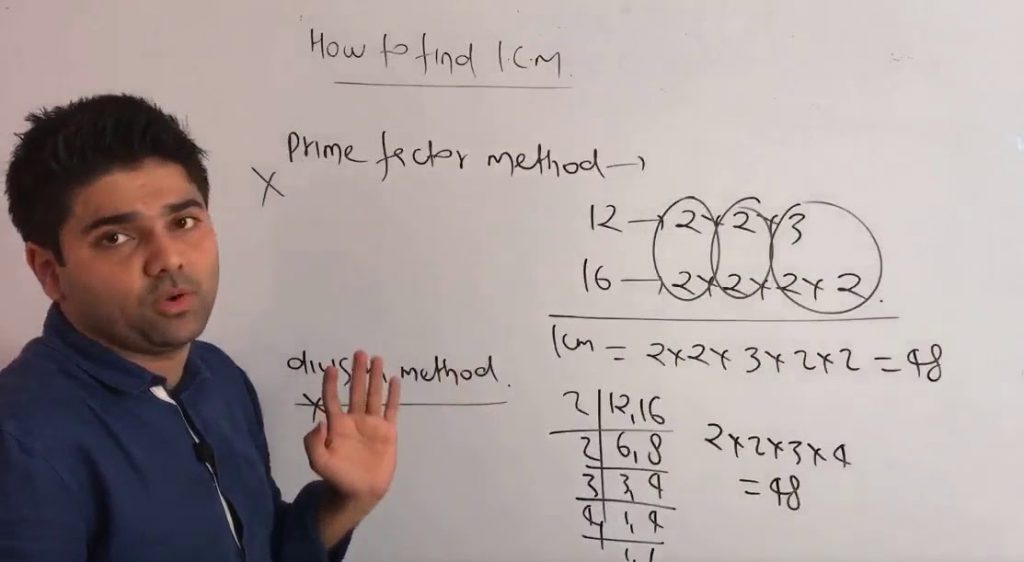 How to find l.C.M.
Prime factor method →
X
12 → 2 x 2 x 3
16 → 2 x 2 x 2 x 2.
lcm = 2 x 2 x 3 x 2 x 2 = 48
division method.
x
2 | 12, 16
2 | 6, 8
3 | 3, 4
4 | 1, 4
1, 1
2 x 2 x 3 x 4
= 48